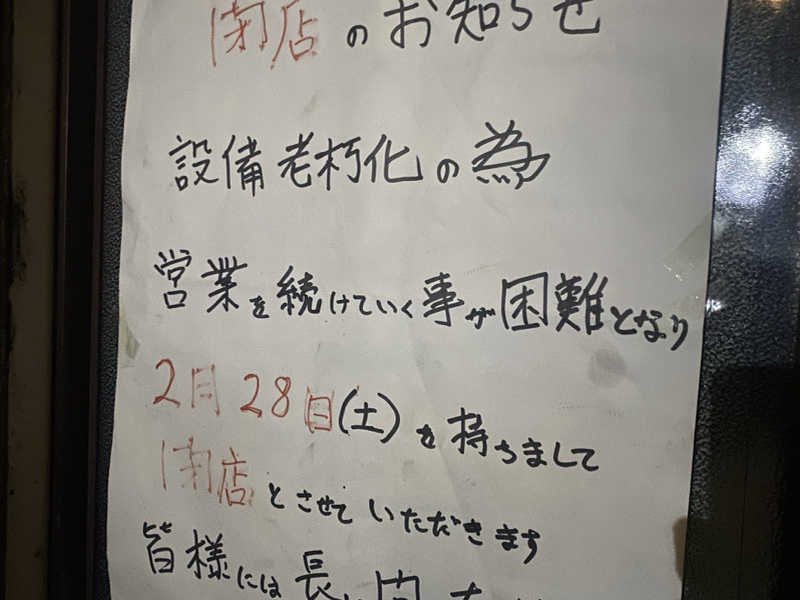 閉店のお知らせ
設備老朽化の為
営業を続けていく事が困難となり
2月28日(土)を持ちまして
閉店とさせていただきます
皆様には長い間